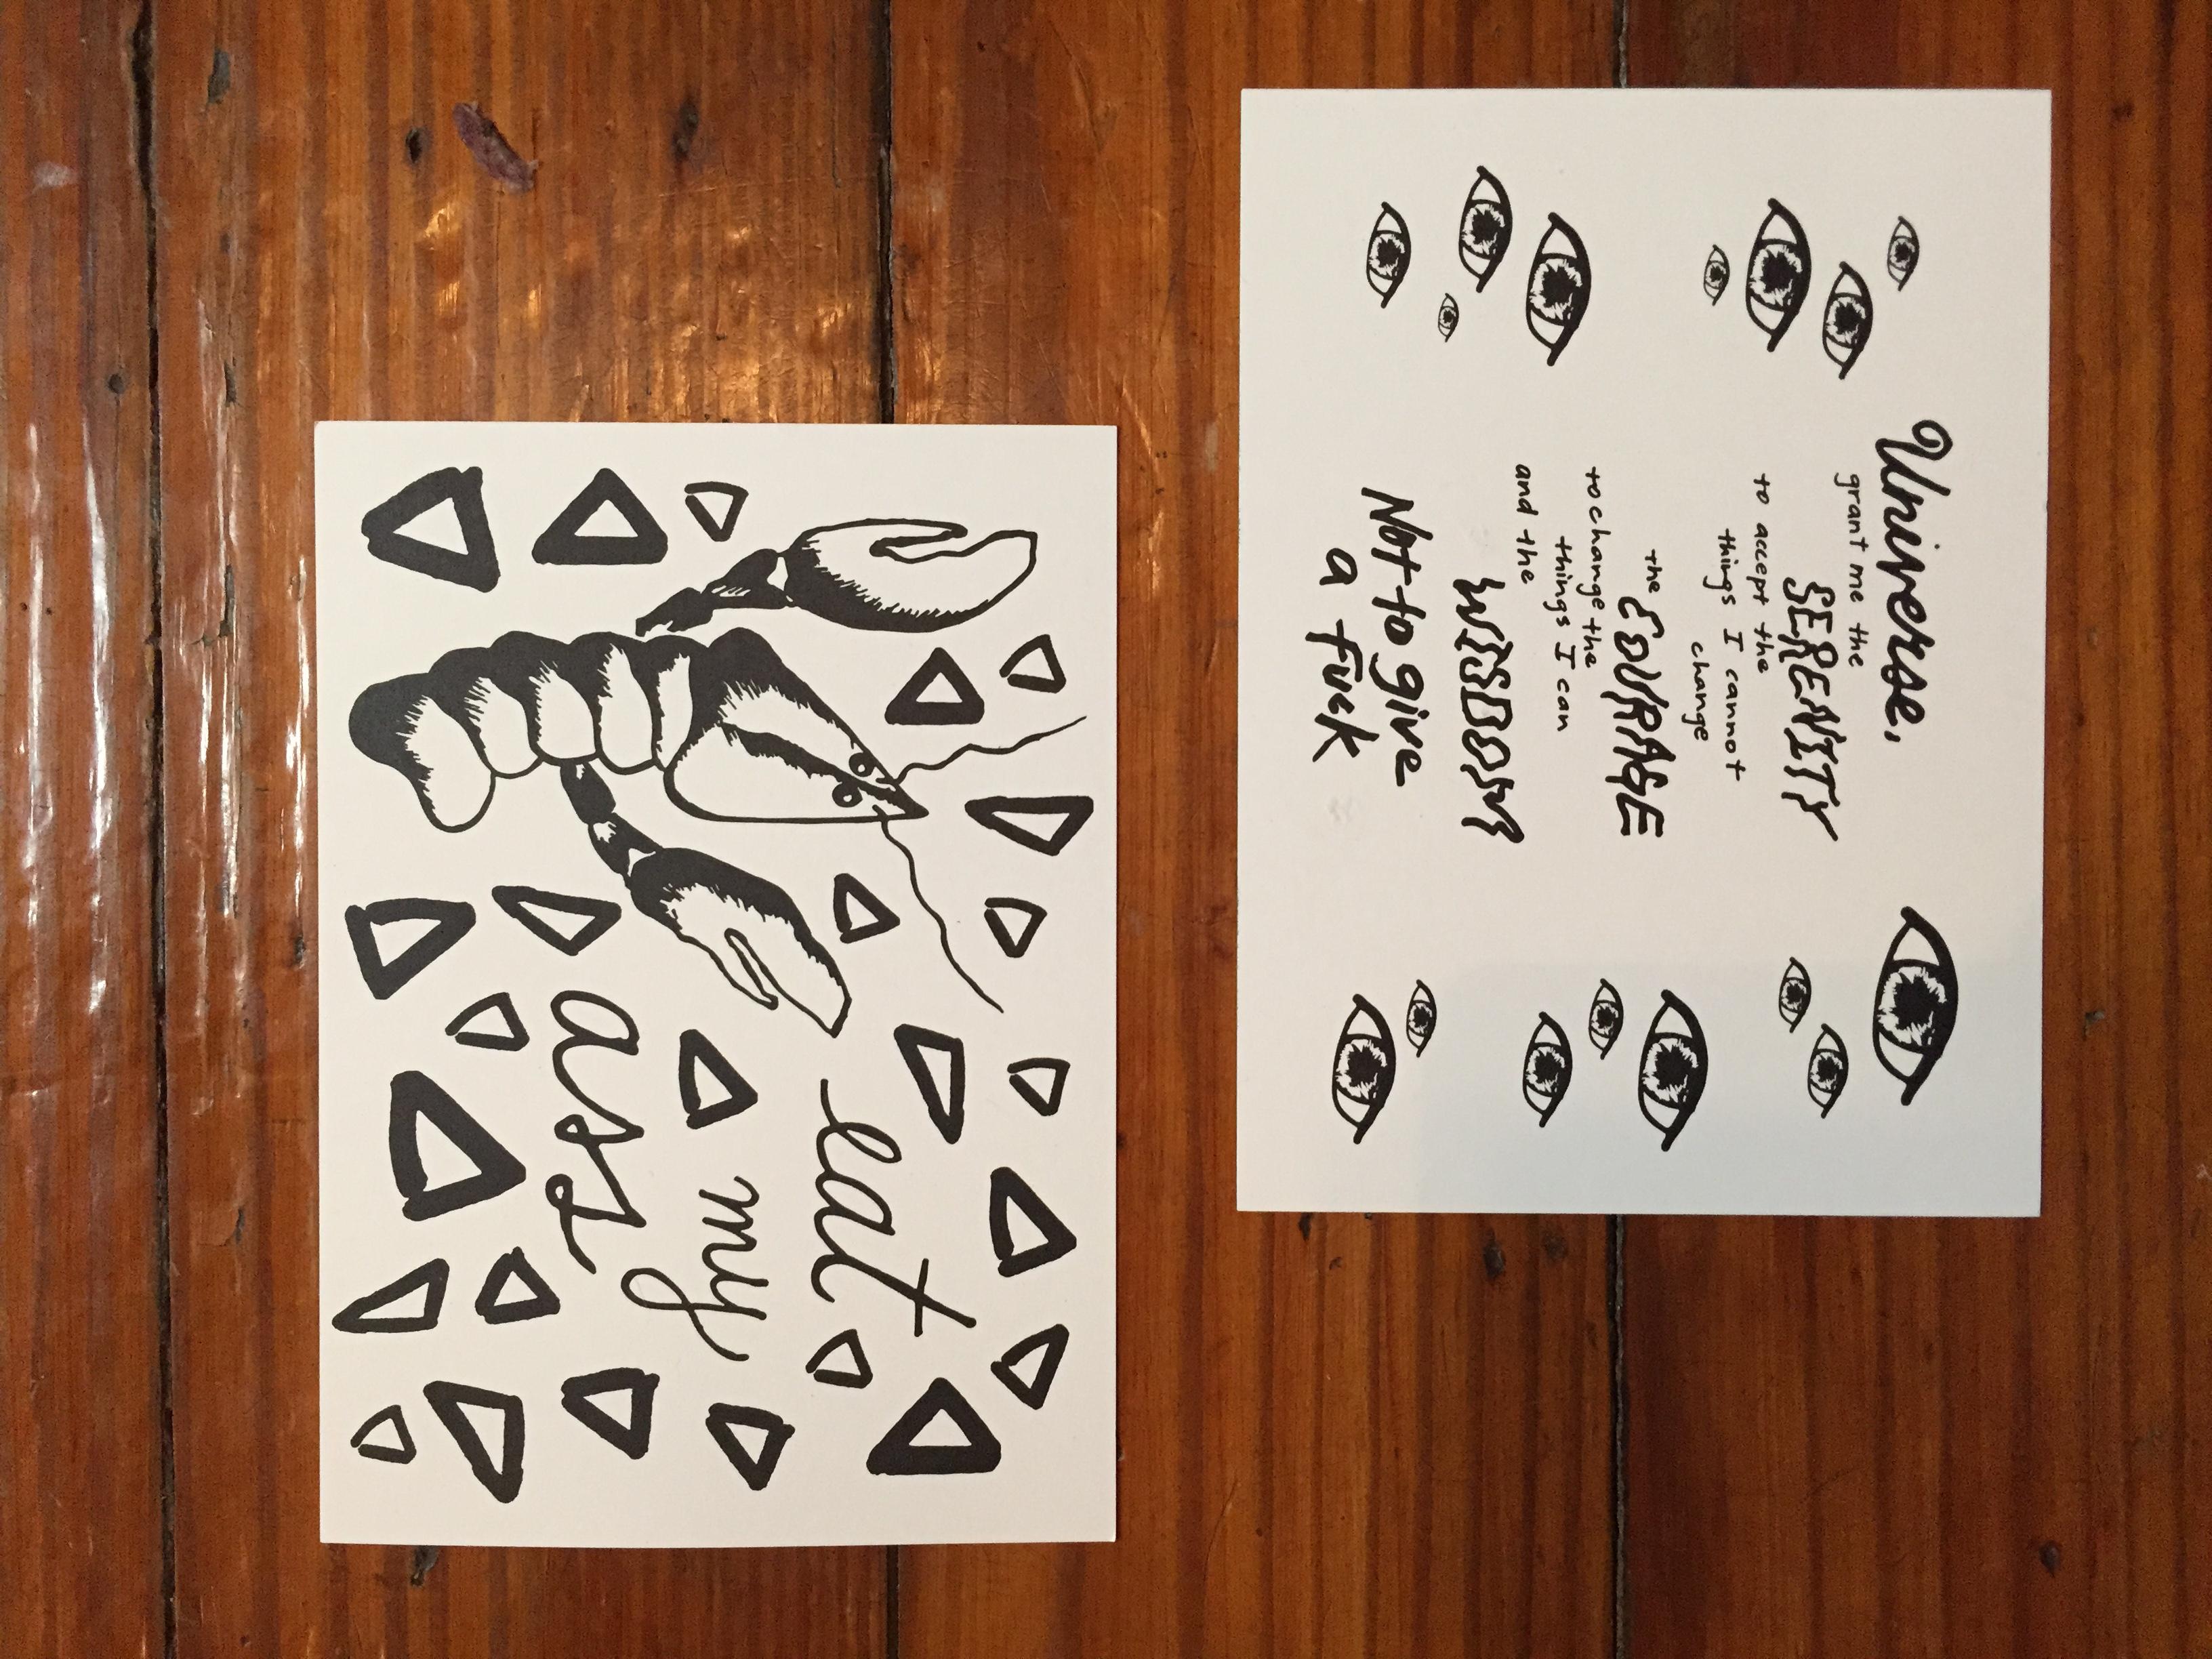 Universe,
grant me the
SERENITY
to accept the
things I cannot
change
the COURAGE
to change the
things I can
and the
WISDOM
Not to give
a fuck
eat
my
ass